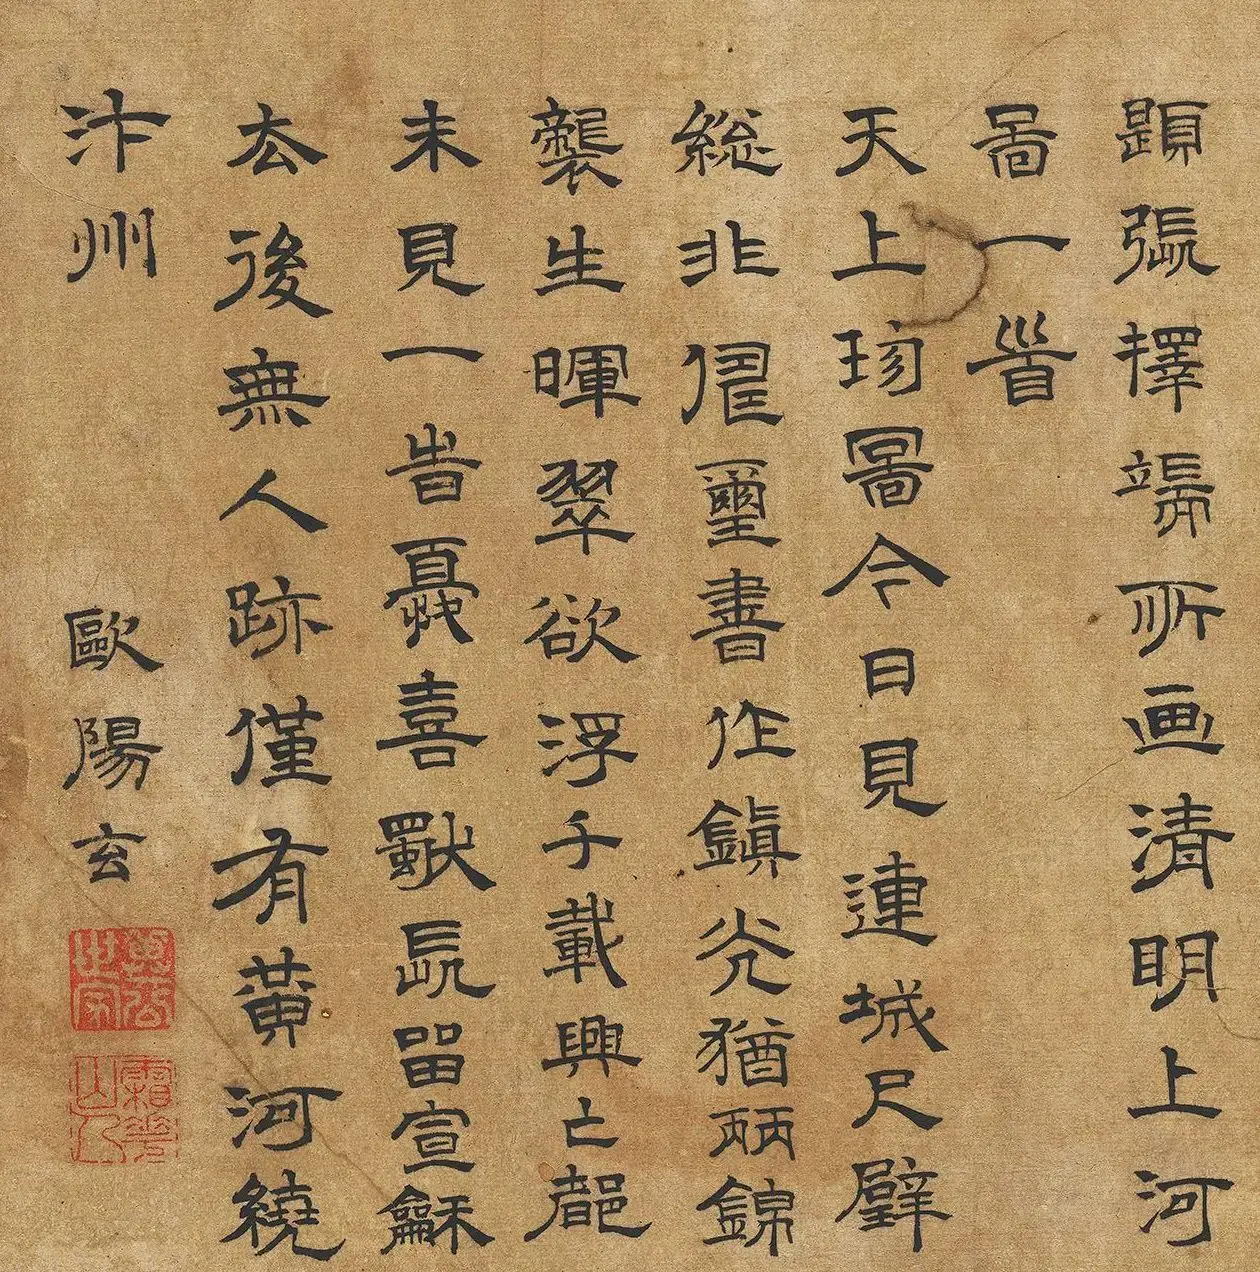 題張擇端所画清明上河
圖一首
天上珍圖今日見連城尺璧
総非儔璽書作鎮光猶炳錦
襲生暉翠欲浮千載興亡都
未見一旹憂喜獨長留宣龢
去後無人跡僅有黃河繞
汴州 歐陽玄